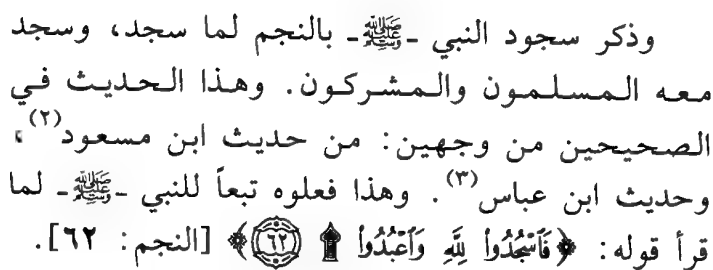 وذكر سجود النبي -ﷺ- بالنجم لما سجد، وسجد
معه المسلمون والمشركون. وهذا الحديث في
الصحيحين من وجهين: من حديث ابن مسعود(٢)،
وحديث ابن عباس(٣). وهذا فعلوه تبعاً للنبي -ﷺ- لما
قرأ قوله: ﴿فَٱسْجُدُوا۟ لِلَّهِ وَٱعْبُدُوا۟ ۩ ۝٦٢﴾ [النجم: ٦٢].